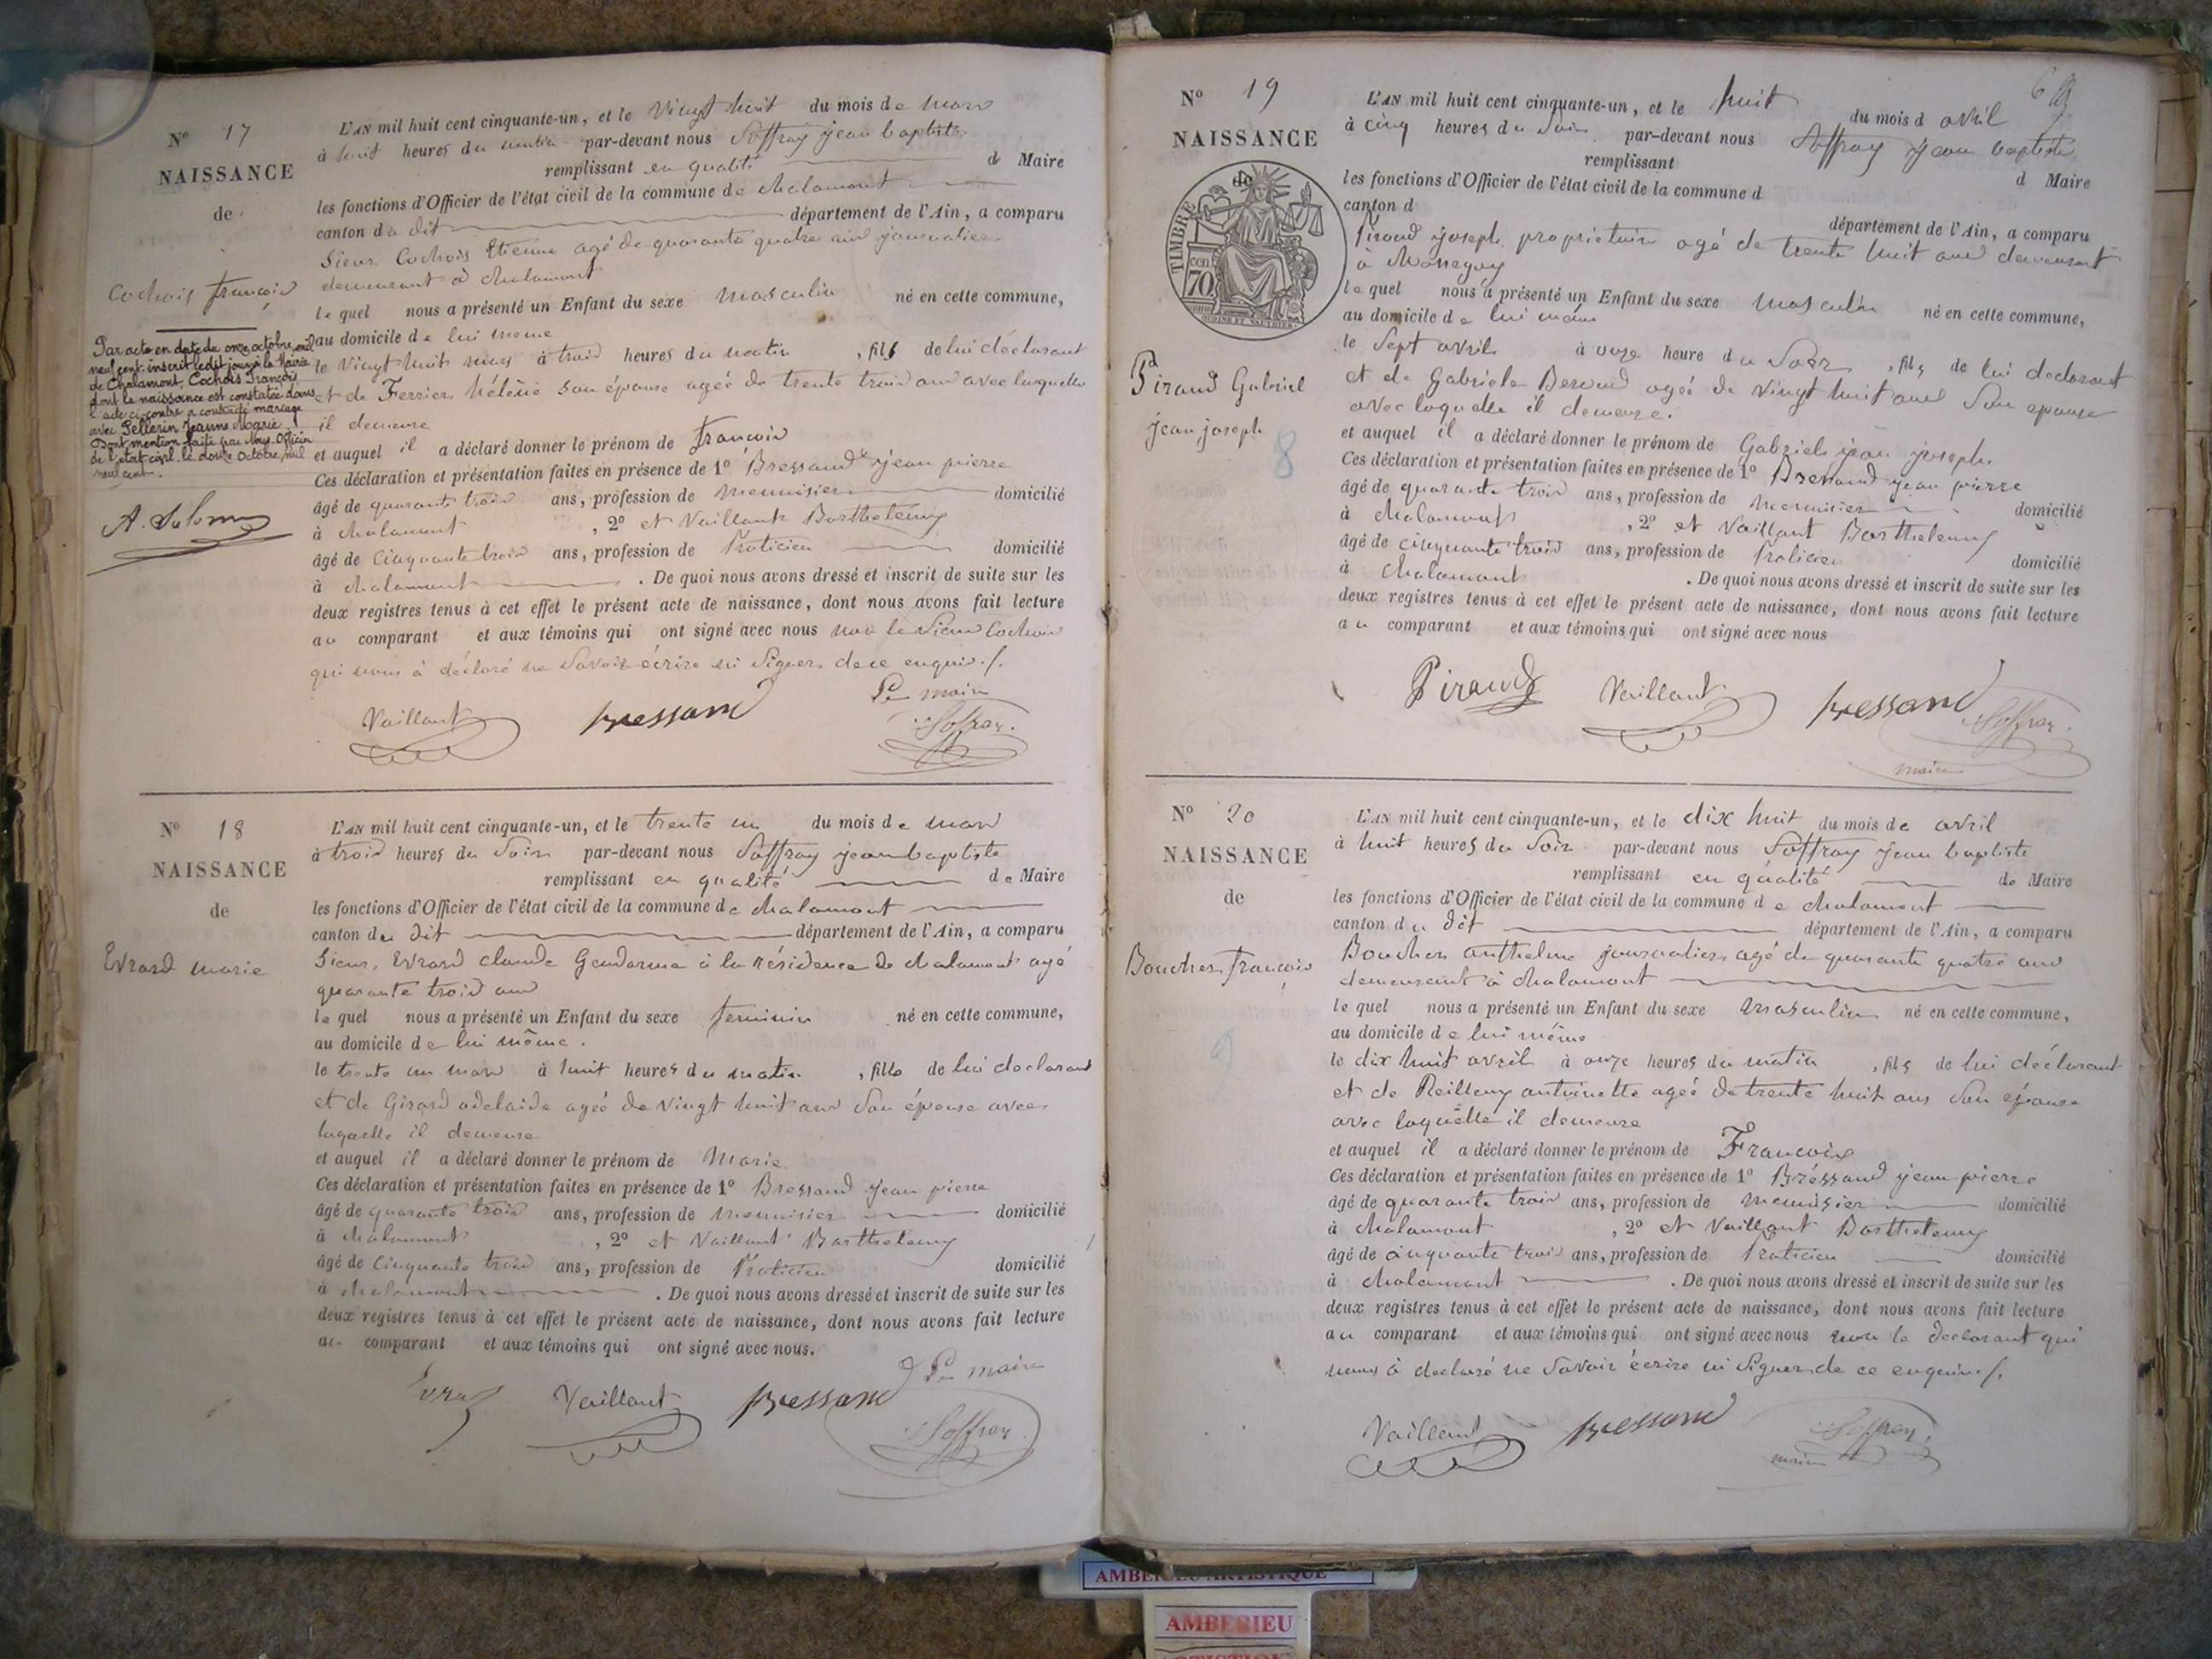 N° 17
NAISSANCE
de
Cochois françois
Par acte en date du onze octobre, mil
neuf cent, inscrit ledit jour à la Mairie
de Chalamont, Cochois François
dont la naissance est constatée dans
l'acte ci-contre a contracté mariage
avec Pellerin Jeanne Marie
Dont mention faite par Nous, Officier
de l'état civil le douze Octobre, mil
neuf cent.
L'AN mil huit cent cinquante-un, et le Vingt huit du mois de mars
à huit heures du matin par-devant nous Soffray jean baptiste
remplissant en qualité de Maire
les fonctions d'Officier de l'état civil de la commune de chalamont
canton du dit département de l'Ain, a comparu
Sieur Cochois Etienne agé de quarante quatre ans journalier
demeurant à chalamont
lequel nous a présenté un Enfant du sexe masculin né en cette commune,
au domicile de lui meme
le Vingt huit mars à trois heures du matin , fils de lui déclarant
et de Ferrier hélène son épouse agée de trente trois ans avec laquelle
il demeure
et auquel il a déclaré donner le prénom de françois
Ces déclaration et présentation faites en présence de 1° Bressand jean pierre
âgé de quarante trois ans, profession de menuisier domicilié
à chalamont , 2° et Vaillant Barthelemy
âgé de Cinquante trois ans, profession de Praticien domicilié
à chalamont . De quoi nous avons dressé et inscrit de suite sur les
deux registres tenus à cet effet le présent acte de naissance, dont nous avons fait lecture
au comparant et aux témoins qui ont signé avec nous non le sieur Cochois
qui nous à déclaré ne savoir écrire ni signer de ce enquis ./.
Vaillant bressand Le maire
Soffray
N° 18
NAISSANCE
de
Evrard marie
L'AN mil huit cent cinquante-un, et le trente un du mois de mars
à trois heures du soir par-devant nous Soffray jean baptiste
remplissant en qualité de Maire
les fonctions d'Officier de l'état civil de la commune de chalamont
canton du dit département de l'Ain, a comparu
Sieur Evrard claude Gendarme à la résidence de chalamont agé
quarante trois ans
lequel nous a présenté un Enfant du sexe feminin né en cette commune,
au domicile de lui même.
le trente un mars à huit heures du matin , fille de lui declarant
et de Girard adelaide agée de Vingt huit ans son épouse avec
laquelle il demeure
et auquel il a déclaré donner le prénom de Marie
Ces déclaration et présentation faites en présence de 1° Bressand jean pierre
âgé de quarante trois ans, profession de menuisier domicilié
à chalamont , 2° et Vaillant Barthelemy
âgé de Cinquante trois ans, profession de Praticien domicilié
à chalamont . De quoi nous avons dressé et inscrit de suite sur les
deux registres tenus à cet effet le présent acte de naissance, dont nous avons fait lecture
au comparant et aux témoins qui ont signé avec nous.
Vaillant bressand Le maire
Soffray
N° 19
NAISSANCE
de
TIMBRE
70 cen
Piraud Gabriel
jean joseph
8
L'AN mil huit cent cinquante-un, et le huit du mois d avril
à cinq heures du soir par-devant nous Soffray jean baptiste
remplissant d Maire
les fonctions d'Officier de l'état civil de la commune d
canton d département de l'Ain, a comparu
Piraud joseph proprietaire agé de trente huit ans demeurant
à
lequel nous a présenté un Enfant du sexe masculin né en cette commune,
au domicile de lui même
le Sept avril à onze heure du Soir , fils de lui declarant
et de Gabriele Beroud agée de Vingt huit ans Son epouse
avec laquelle il demeure.
et auquel il a déclaré donner le prénom de Gabriel jean joseph.
Ces déclaration et présentation faites en présence de 1° Bressand jean pierre
âgé de quarante trois ans, profession de menuisier domicilié
à chalamont , 2° et Vaillant Barthelemy
âgé de cinquante trois ans, profession de Praticien domicilié
à chalamont . De quoi nous avons dressé et inscrit de suite sur les
deux registres tenus à cet effet le présent acte de naissance, dont nous avons fait lecture
au comparant et aux témoins qui ont signé avec nous
Piraud Vaillant bressand Soffray
maire
N° 20
NAISSANCE
de
Boucher françois
9
L'AN mil huit cent cinquante-un, et le dix huit du mois de avril
à huit heures du Soir par-devant nous Soffray jean baptiste
remplissant en qualité de Maire
les fonctions d'Officier de l'état civil de la commune de chalamont
canton du dit département de l'Ain, a comparu
Boucher anthelme journalier agé de quarante quatre ans
demeurant à chalamont
lequel nous a présenté un Enfant du sexe masculin né en cette commune,
au domicile de lui même
le dix huit avril à onze heures du matin , fils de lui déclarant
et de Reilleny antoinette agée de trente huit ans son épouse
avec laquelle il demeure
et auquel il a déclaré donner le prénom de François
Ces déclaration et présentation faites en présence de 1° Bréssand jean pierre
âgé de quarante trois ans, profession de menuisier domicilié
à chalamont , 2° et Vaillant Barthelemy
âgé de cinquante trois ans, profession de Praticien domicilié
à chalamont . De quoi nous avons dressé et inscrit de suite sur les
deux registres tenus à cet effet le présent acte de naissance, dont nous avons fait lecture
au comparant et aux témoins qui ont signé avec nous non le declarant qui
nous à declaré ne Savoir écrire ni Signer de ce enquis ./.
Vaillant bressand Soffray
maire
AMBERIEU ARTISTIQUE
AMBERIEU
ARTISTIQUE